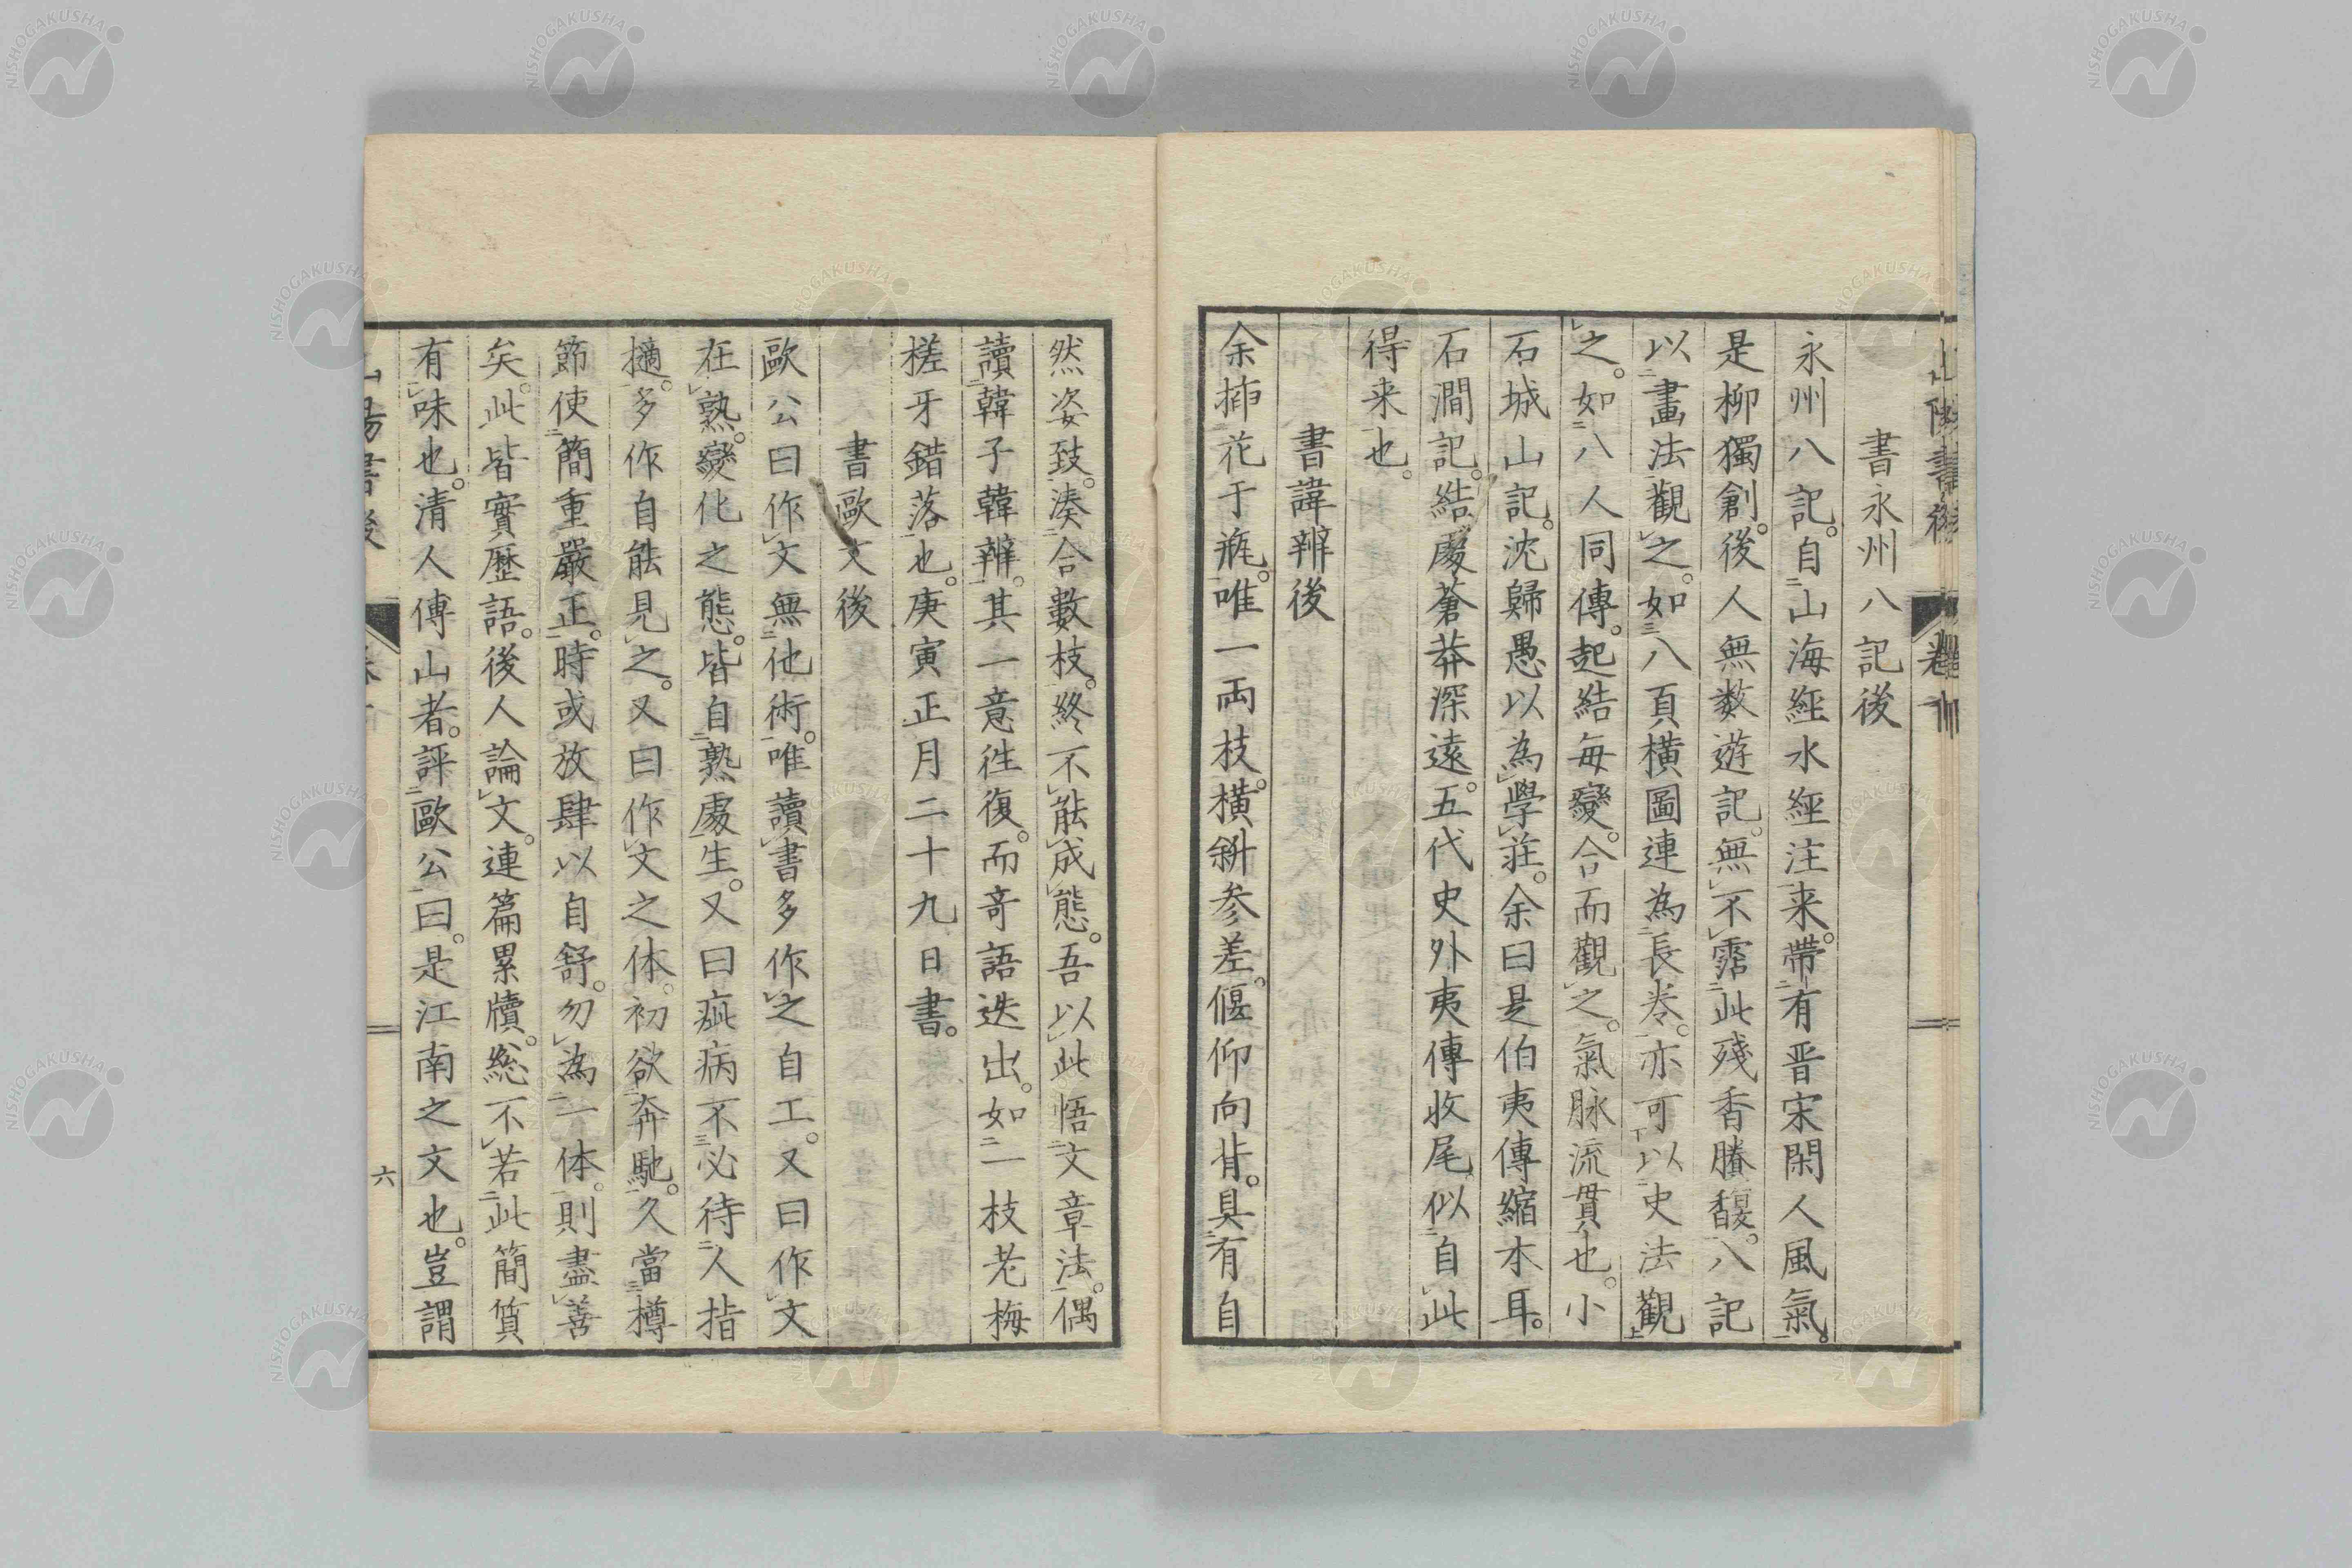 書永州八記後
永州八記。自山海經水經注来。帶有晋宋閑人風氣。
是柳獨創。後人無數遊記。無不霑此殘香賸馥。八記
以畫法觀之。如八頁横圖連為長卷。亦可以史法觀
之。如八人同傳。起結每變。合而觀之。氣脉流貫也。小
石城山記。沈歸愚以為學莊。余曰是伯夷傳縮本耳。
石澗記。結處蒼莽深遠。五代史外夷傳收尾似自此
得来也。
書諱辨後
余插花于瓶。唯一両枝。横斜参差。偃仰向背。具有自
然姿致。湊合數枝。終不能成態。吾以此悟文章法。偶
讀韓子韓辨。其一意徃復。而奇語迭出。如一枝老梅
槎牙錯落也。庚寅正月二十九日書。
書歐文後
歐公曰作文無他術。唯讀書多作之自工。又曰作文
在熟。變化之態。皆自熟處生。又曰疵病不必待人指
擿。多作自能見之。又曰作文之体。初欲奔馳。久當樽
節使簡重嚴正。時或放肆以自舒。勿為一体。則盡善
矣。此皆實歷語。後人論文。連篇累牘。総不若此簡質
有味也。清人傅山者。評歐公曰。是江南之文也。豈謂
六
NISHOGAKUSHA